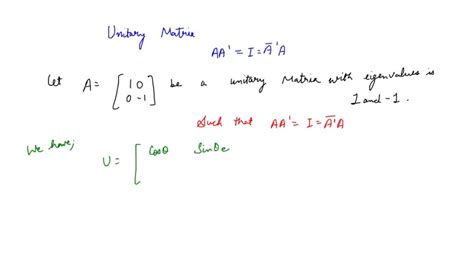 Unitary Matrix
AA' = I = A̅'A
Let A = [1 0
0 -1] be a unitary Matrix with eigenvalues is
1 and -1.
Such that AA' = I = A̅'A
We have;
U = [ Cosθ Sinθe